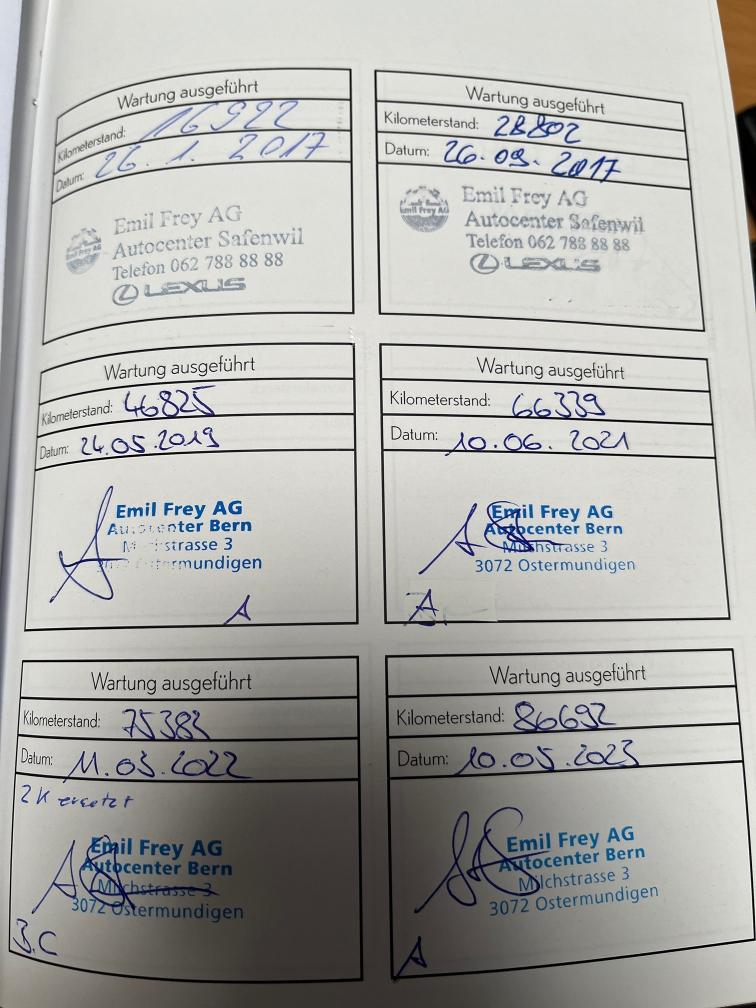 Wartung ausgeführt
Kilometerstand: 16922
Datum: 26.1.2017
Emil Frey AG
Emil Frey AG
Autocenter Safenwil
Telefon 062 788 88 88
LEXUS
Wartung ausgeführt
Kilometerstand: 28802
Datum: 26.09.2017
Emil Frey AG
Emil Frey AG
Autocenter Safenwil
Telefon 062 788 88 88
LEXUS
Wartung ausgeführt
Kilometerstand: 46825
Datum: 24.05.2019
Emil Frey AG
Autocenter Bern
strasse 3
Ostermundigen
A
Wartung ausgeführt
Kilometerstand: 66339
Datum: 10.06.2021
Emil Frey AG
Autocenter Bern
Milchstrasse 3
3072 Ostermundigen
A
Wartung ausgeführt
Kilometerstand: 75382
Datum: 11.03.2022
ersetzt
Emil Frey AG
Autocenter Bern
Milchstrasse 3
3072 Ostermundigen
3.C
Wartung ausgeführt
Kilometerstand: 86692
Datum: 10.05.2023
Emil Frey AG
Autocenter Bern
Milchstrasse 3
3072 Ostermundigen
A